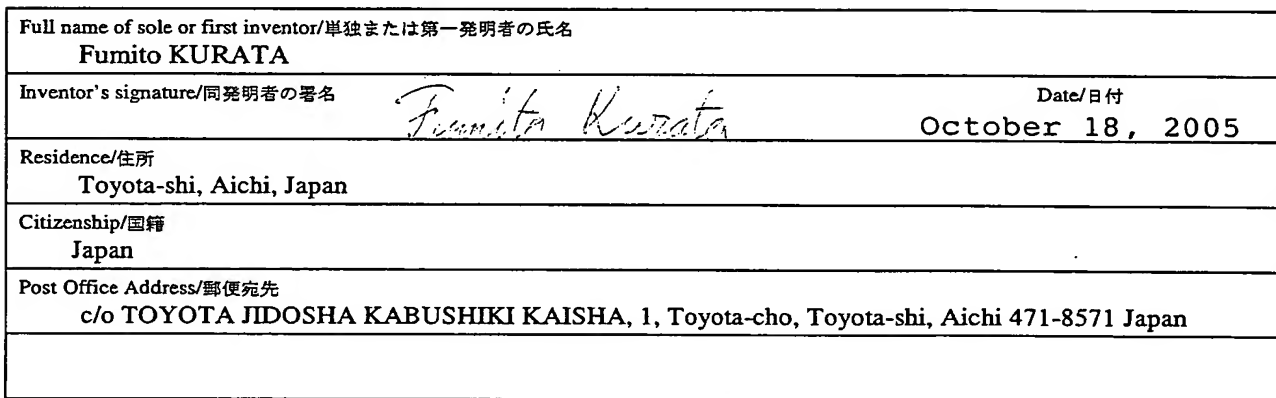 Full name of sole or first inventor/単独または第一発明者の氏名
Fumito KURATA
Inventor's signature/同発明者の署名 Fumito Kurata Date/日付
October 18, 2005
Residence/住所
Toyota-shi, Aichi, Japan
Citizenship/国籍
Japan
Post Office Address/郵便宛先
c/o TOYOTA JIDOSHA KABUSHIKI KAISHA, 1, Toyota-cho, Toyota-shi, Aichi 471-8571 Japan